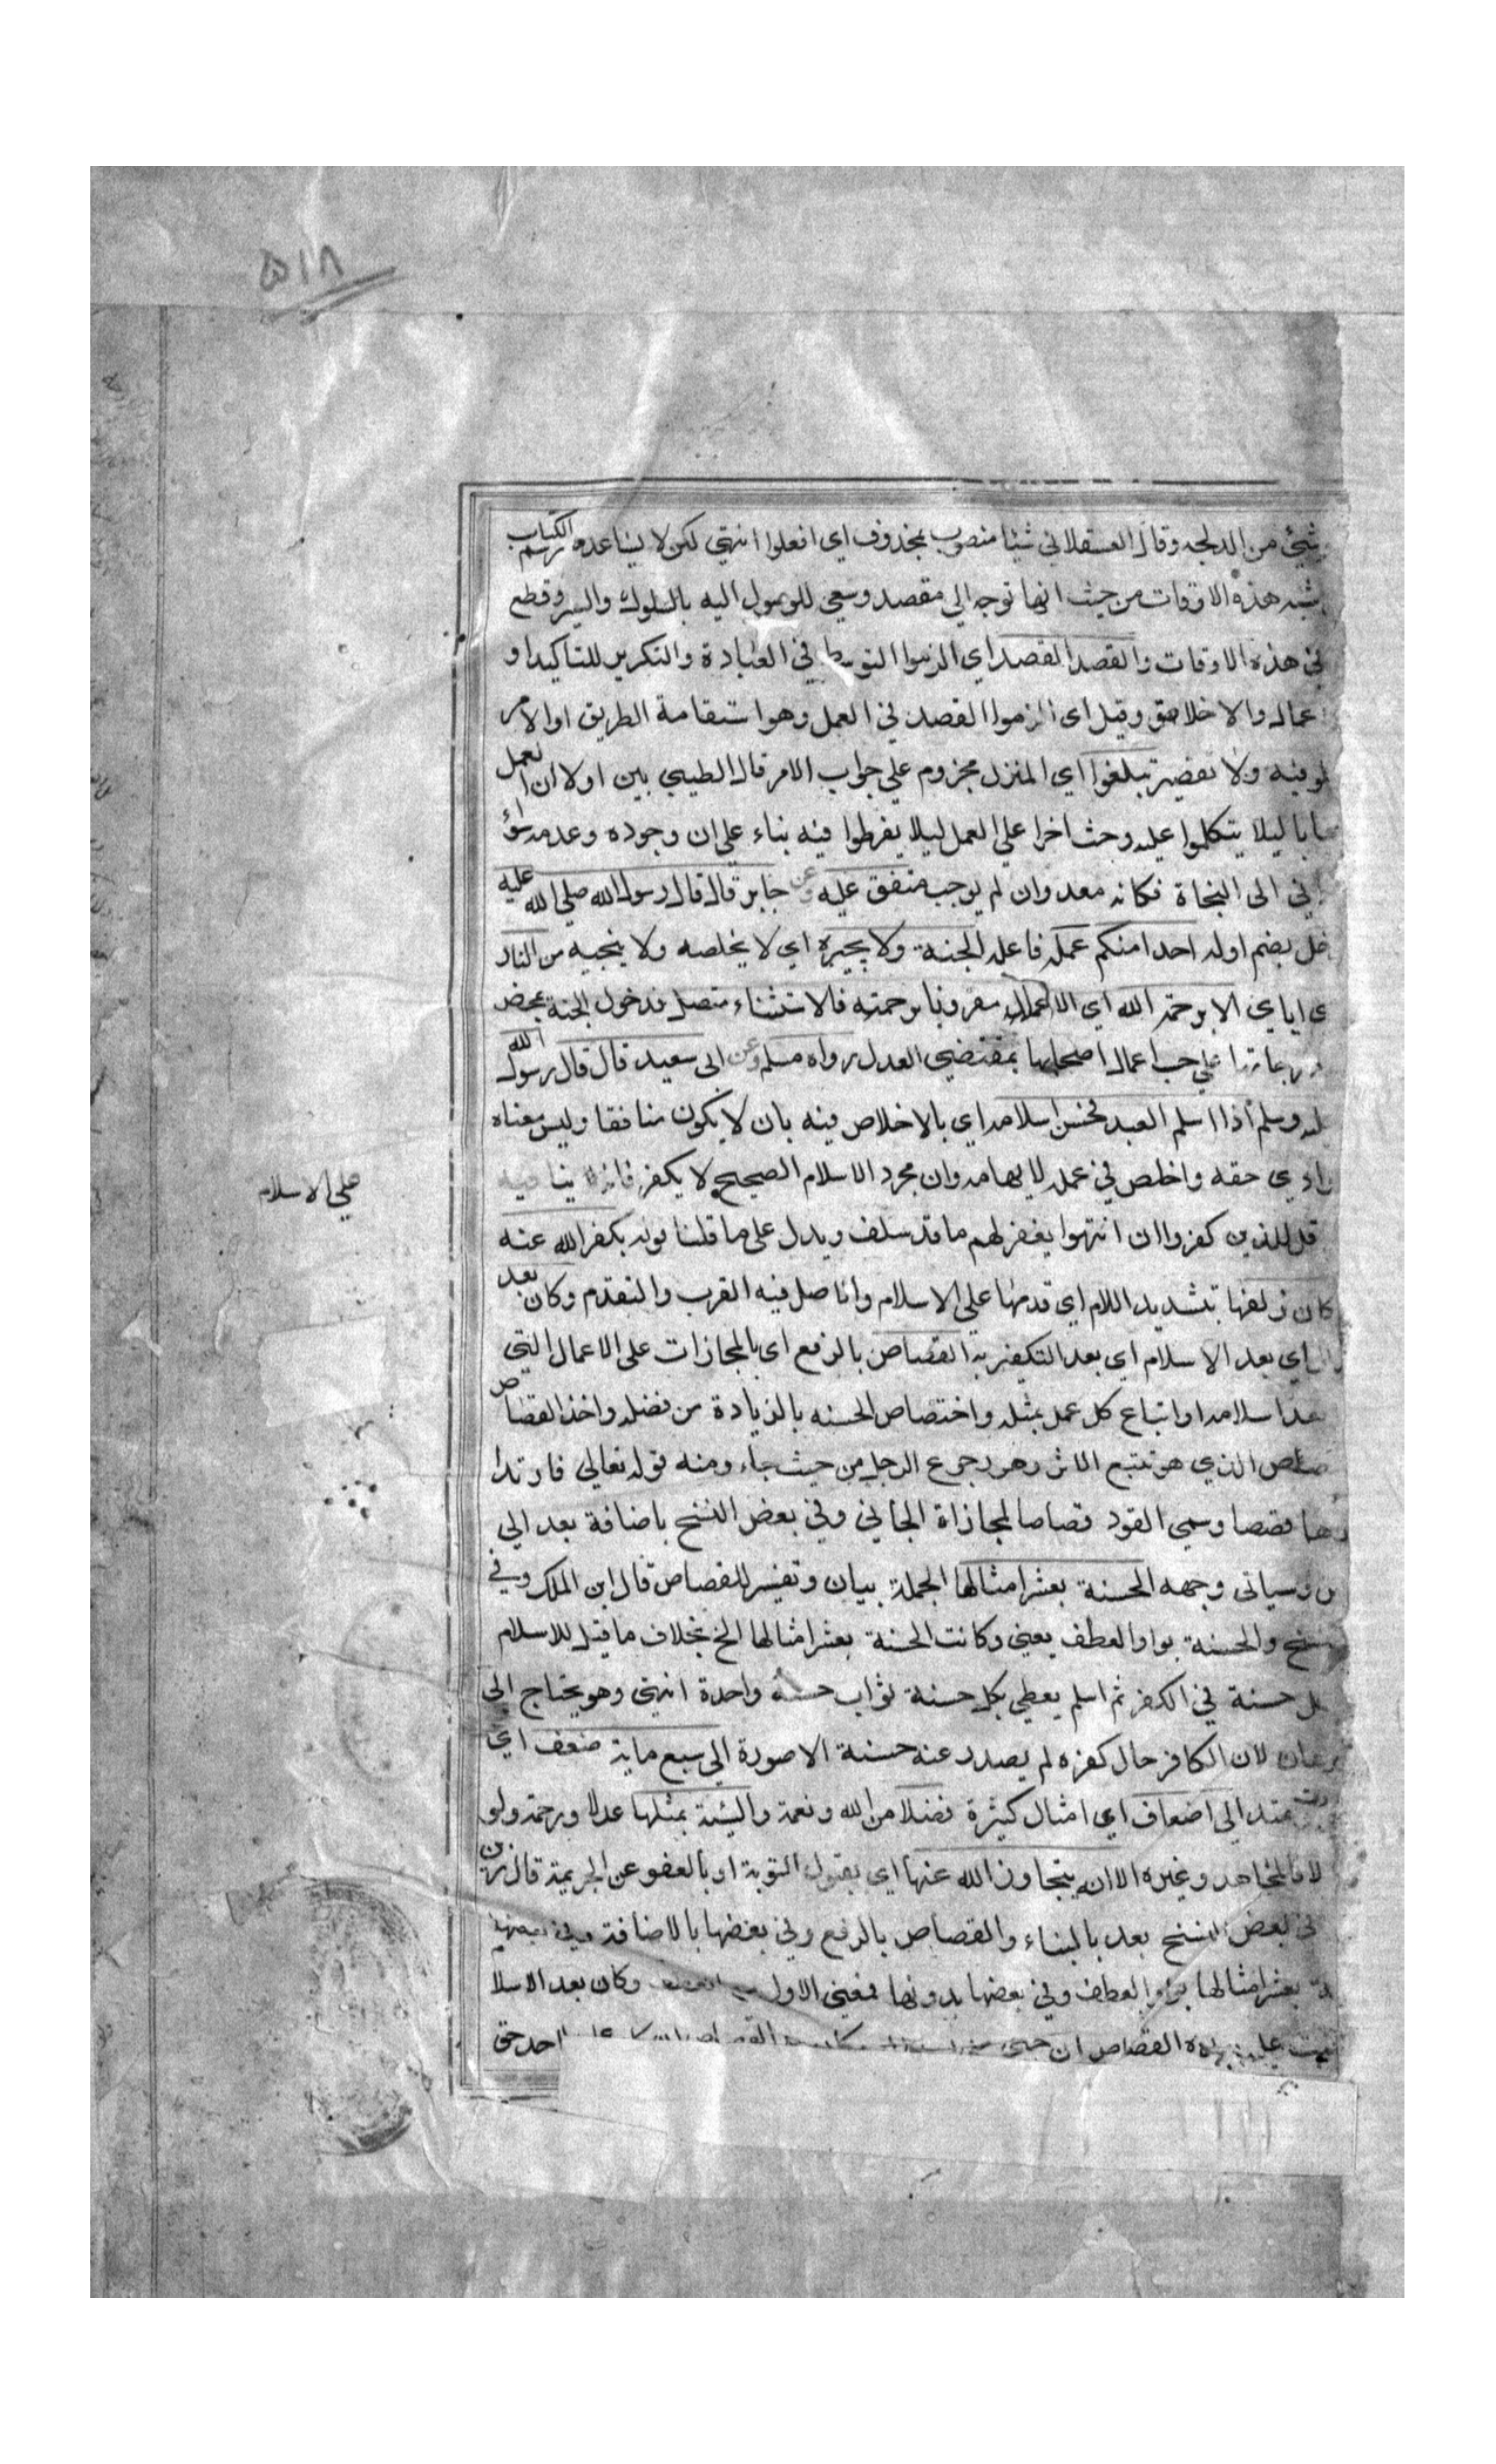 ۵۱۸
شيئ من الدلجه وقال العسقلاني شيئا منصوب بمحذوف اي افعلوا انتهي لكن لا يساعده رسم الكتاب
شبه هذه الاوقات من حيث انها توجه الي مقصد وسعي للوصول اليه بالسلوك والسير وقطع
في هذه الاوقات والقصد القصد اي الزموا التوسط في العبادة والتكرير للتاكيد او
عمال والاخلاق وقيل اي الزموا القصد في العمل وهو استقامة الطريق او الامر
فيه ولا تقصير تبلغوا اي المنزل مجزوم علي جواب الامر قال الطيبي بين اولا ان العمل
ليلا يتكلموا عليه وحث اخرا علي العمل ليلا يفرطوا فيه بناء علي ان وجوده وعدمه سواء
الى النجاة فكانه معد وان لم يوجب متفق عليه وعن جابر قال قال رسول الله صلي الله عليه
بضم اوله احدا منكم عمله فاعله الجنة ولا يجيره اي لا يخلصه ولا ينجيه من النار
اياي الا برحمة الله اي الا مقرونا برحمته فالاستثناء متصل فدخول الجنة بمحض
علي حسب اعمال اصحابها بمقتضي العدل رواه مسلم وعن ابى سعيد قال قال رسول الله
وسلم اذا اسلم العبد فحسن اسلامه اي بالاخلاص فيه بان لا يكون منافقا وليس معناه
حقه واخلص في عمله لايهامه وان مجرد الاسلام الصحيح لا يكفر فانه ينافيه
قل للذين كفروا ان انتهوا يغفر لهم ما قد سلف ويدل على ما قلنا قوله يكفر الله عنه
كان زلفها بتشديد اللام اي قدمها على الاسلام واصل فيه القرب والتقدم وكان بعد
اي بعد الاسلام اي بعد التكفير به القصاص بالرفع اى بالمجازات على الاعمال التي
بعد اسلامه او اتباع كل عمل بمثله واختصاص الحسنه بالزيادة من فضله واخذ القصاص
الذي هو تتبع الاثر وهو رجوع الرجل من حيث جاء ومنه قوله تعالي فارتدا
قصصا وسمي القود قصاصا لمجازاة الجاني وفي بعض النسخ باضافة بعد الي
وسياتى وجهه الحسنة بعشر امثالها الجملة بيان وتفسير للقصاص قال ابن الملك وفي
والحسنة بواو العطف يعني وكانت الحسنة بعشر امثالها الخ بخلاف ما قبل الاسلام
حسنة في الكفر ثم اسلم يعطي بكل حسنة ثواب حسنة واحدة انتهى وهو يحتاج الى
لان الكافر حال كفره لم يصدر عنه حسنة الا صورة الي سبع ماية ضعف اي
الى اضعاف اي امثال كثيرة فضلا من الله ونعمة والسيئة بمثلها عدلا ورحمة ولو
وغيره الا ان يتجاوز الله عنها اي بقبول التوبة او بالعفو عن الجريمة قال
في بعض النسخ بعد بالبناء والقصاص بالرفع وفي بعضها بالاضافة وفي بعضها
بعشر امثالها بواو العطف وفي بعضها بدونها فمعنى الاول وكان بعد الاسلا
القصاص ان احد حق
صلي الاسلام